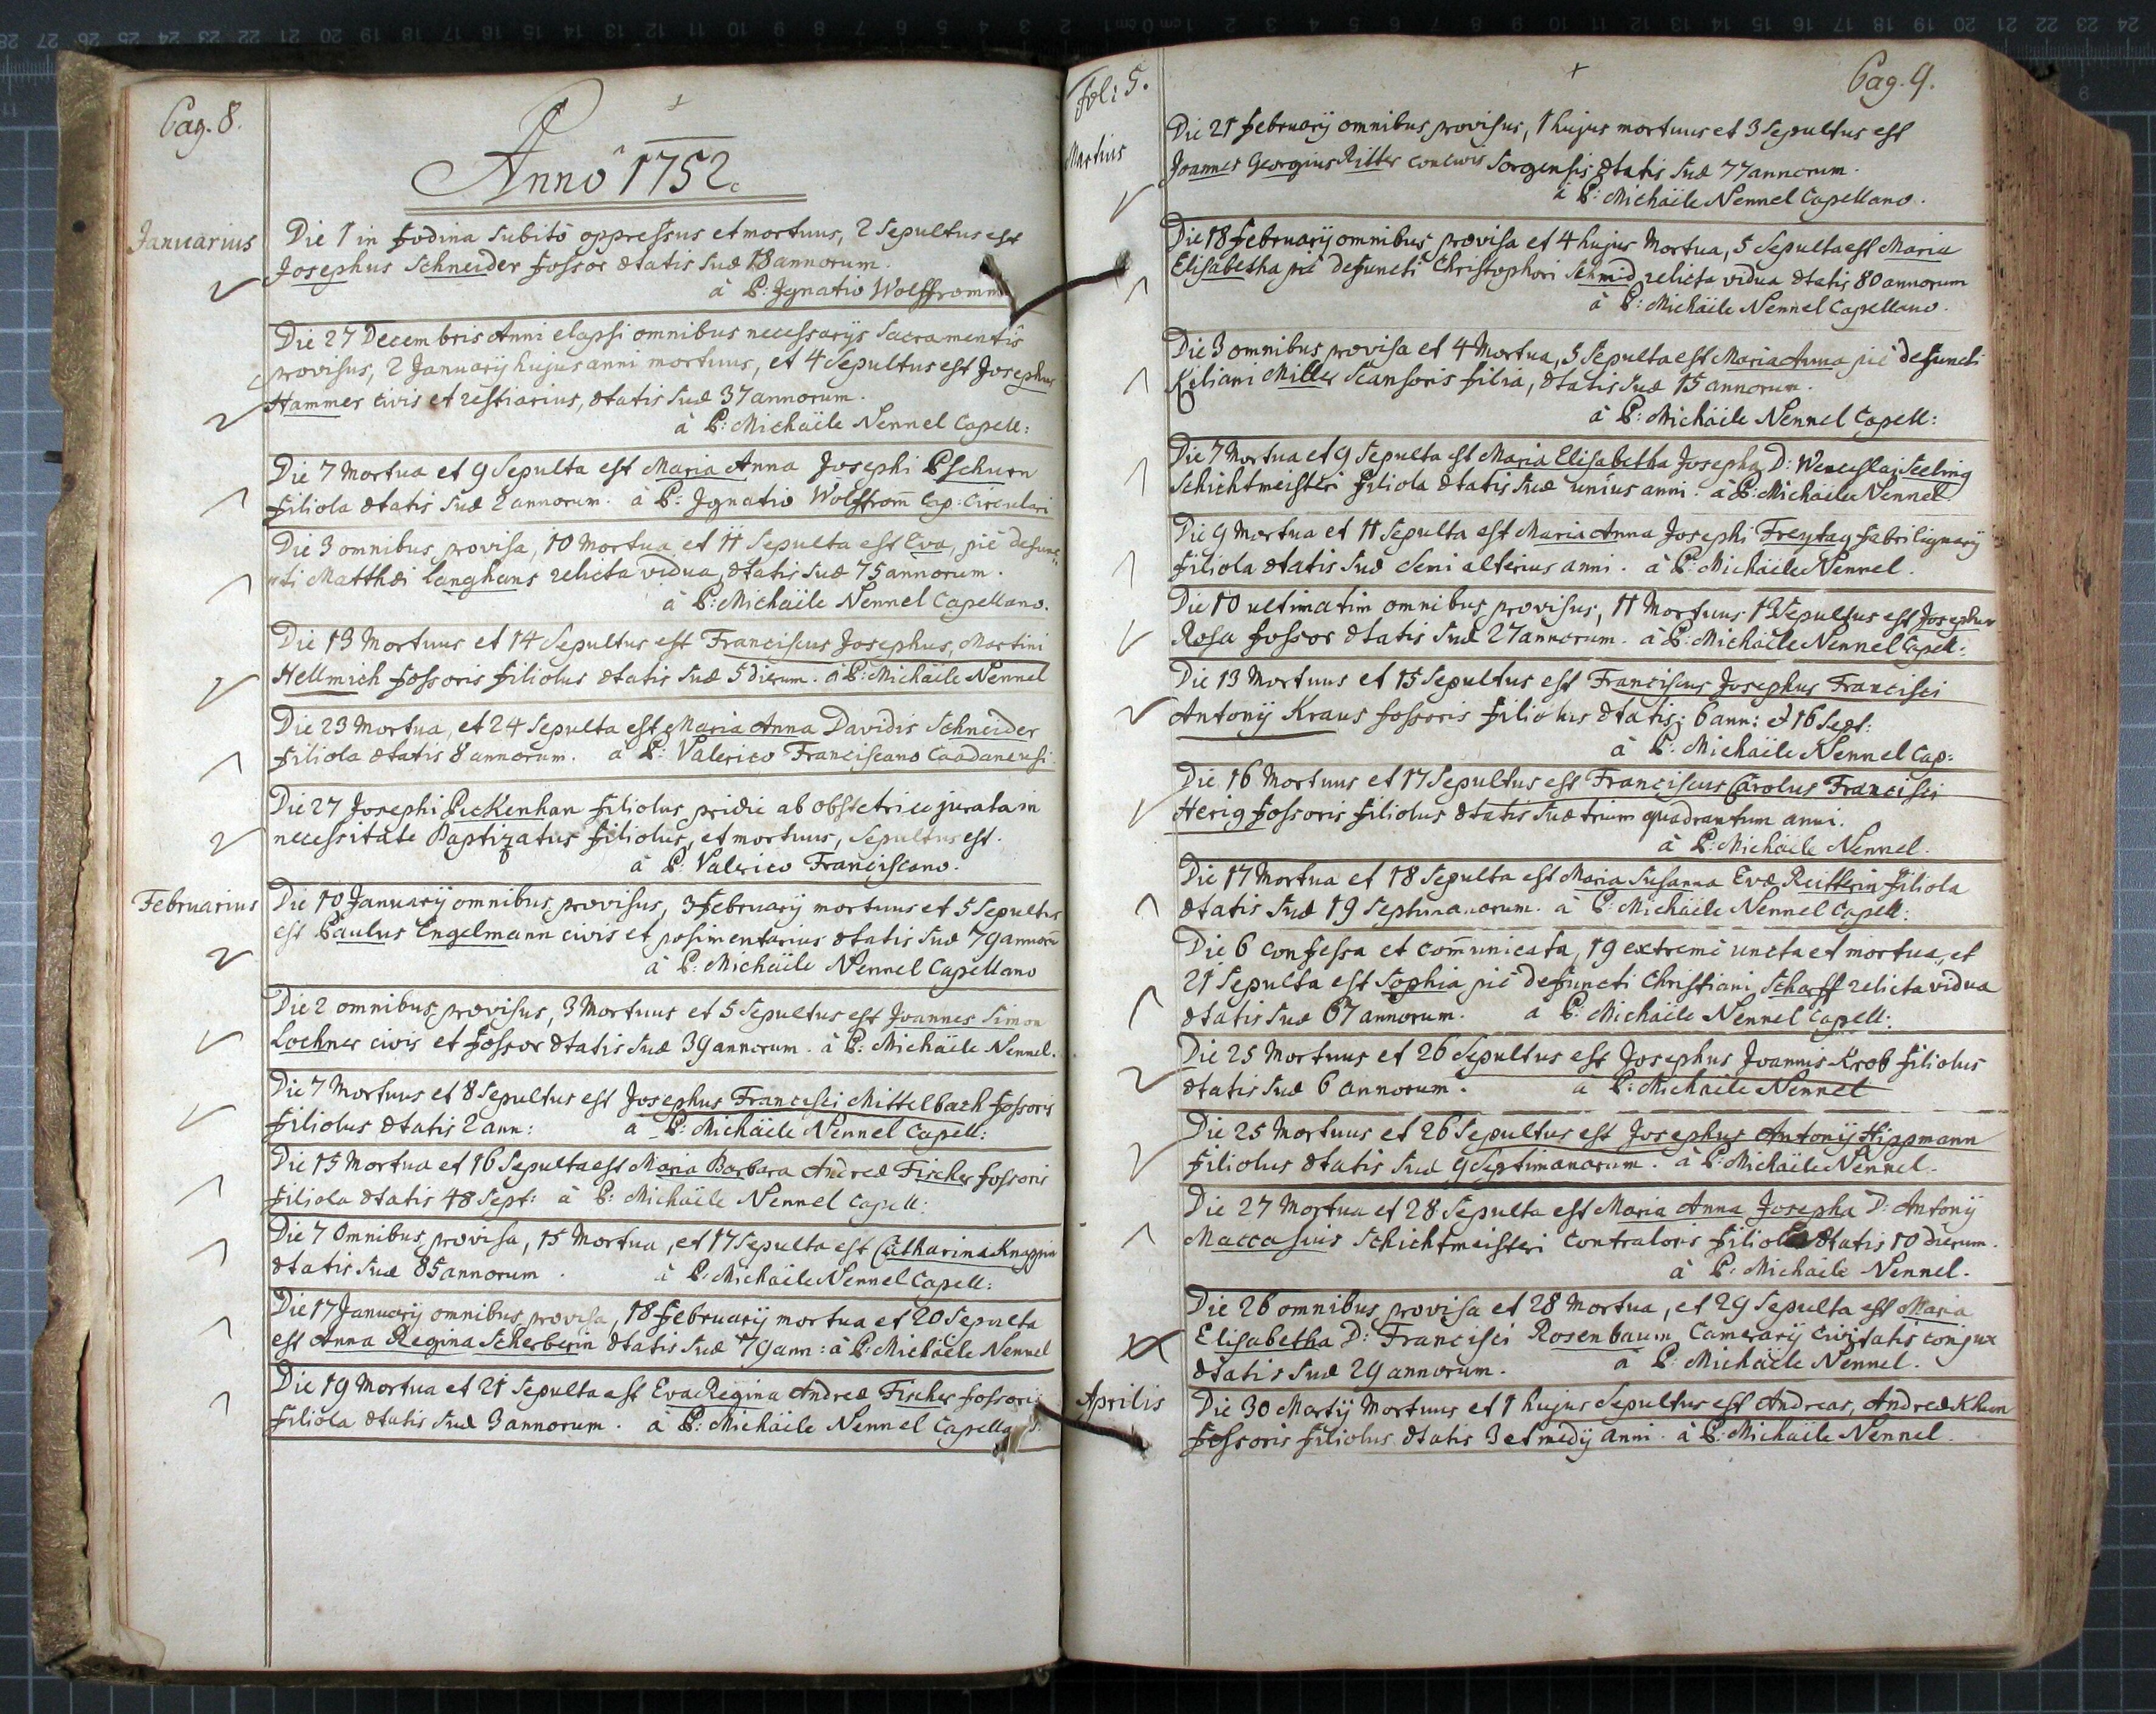 Pag. 8.
Anno 1752.
Januarius
Die 1 in fodina subitò oppressus et mortuus, 2 Sepultus est
Josephus Schneider fossor ætatis suæ 18 annorum.
à P: Ignatio Wolffromm
Die 27 Decembris Anni elapsi omnibus necessarijs Sacramentis
provisus, 2 Januarij hujus anni mortuus, et 4 Sepultus est Josephus
Hammer civis et restiarius, ætatis suæ 37 annorum.
à P: Michäele Nennel Capell:
Die 7 Mortua et 9 Sepulta est Maria Anna Josephi Pschurn
filiola ætatis suæ 2 annorum. à P: Ignatio Wolffrom̄ Cap: Circulari
Die 3 omnibus provisa, 10 Mortua et 11 Sepulta est Eva, piè defunc„
„ti Matthæi Langhans relicta vidua, ætatis suæ 75 annorum.
à P: Michäele Nennel Capellano.
Die 13 Mortuus et 14 Sepultus est Franciscus Josephus, Martini
Hellmich fossoris filiolus ætatis suæ 5 dierum. à P: Michäele Nennel
Die 23 Mortua, et 24 Sepulta est Maria Anna Davidis Schneider
filiola ætatis 8 annorum. à P: Valerico Franciscano Caadanensi.
Die 27 Josephi Pickenhan filiolus pridie ab obstetrice jurata in
necessitate Baptizatus filiolus, et mortuus, Sepultus est.
à P: Valerico Franciscano.
Februarius
Die 10 Januarij omnibus provisus, 3 februarij mortuus et 5 Sepultus
est Paulus Engelmann civis et posimentarius ætatis suæ 79 annorū
à P: Michäele Nennel Capellano
Die 2 omnibus provisus, 3 Mortuus et 5 Sepultus est Joannes Simon
Lochner civis et fossor ætatis suæ 39 annorum. à P: Michäele Nennel.
Die 7 Mortuus et 8 Sepultus est Josephus Francisci Mittelbach fossoris
filiolus ætatis 2 ann: à P: Michäele Nennel Capell:
Die 15 Mortua et 16 Sepulta est Maria Barbara Andreæ Fischer fossoris
filiola ætatis 48 Sept: à P: Michäele Nennel Capell:
Die 7 Omnibus provisa, 15 Mortua, et 17 Sepulta est Catharina Knappin
ætatis suæ 85 annorum. à P: Michäele Nennel Capell:
Die 17 Januarij omnibus provisa, 18 februarij mortua et 20 Sepulta
est Anna Regina Scherberin ætatis suæ 79 ann: à P: Michäele Nennel
Die 19 Mortua et 21 Sepulta est Eva Regina Andreæ Fischer fossoris
filiola ætatis suæ 3 annorum. à P: Michäele Nennel
fol: 5.
Pag. 9.
Martius
Die 21 februarij omnibus provisus, 1 hujus mortuus et 3 Sepultus est
Joannes Georgius Ritter concivis Sorgensis ætatis suæ 77 annorum.
à P: Michäele Nennel Capellano.
Die 18 februarij omnibus provisa et 4 hujus Mortua, 5 Sepulta est Maria
Elisabetha piè defuncti Christophori Schmid relicta vidua ætatis 80 annorum
à P: Michäele Nennel Capellano.
Die 3 omnibus provisa et 4 Mortua, 5 Sepulta est Maria Anna piè defuncti
Kiliani Miller Scansoris filia, ætatis suæ 15 annorum.
à P: Michäele Nennel Capell:
Die 7 Mortua et 9 Sepulta est Maria Elisabetha Josepha D: Wenceslai Seeling
Schichtmeisteri filiola ætatis suæ unius anni. à P: Michäele Nennel
Die 9 Mortua et 11 Sepulta est Maria Anna Josephi Freytag fabri lignarij
filiola ætatis suæ semi alterius anni. à P: Michäele Nennel.
Die 10 ultimatim omnibus provisus, 11 Mortuus Sepultus est Josephus
Rosa fossor ætatis suæ 27 annorum. à P: Michäele Nennel Capell:
Die 13 Mortuus et 15 Sepultus est Franciscus Josephus Francisci
Antonij Kraus fossoris filiolus ætatis: 6 ann: et 16 Sept:
à P: Michäele Nennel Cap:
Die 16 Mortuus et 17 Sepultus est Franciscus Carolus Francisci
Herig fossoris filiolus ætatis suæ trium quadrantum anni.
à P: Michäele Nennel.
Die 17 Mortua et 18 Sepulta est Maria Susanna Evæ Reitterin filiola
ætatis suæ 19 Septimanorum. à P: Michäele Nennel Capell:
Die 6 confessa et com̄unicata, 19 extremè uncta et mortua, et
21 Sepulta est Sophia piè defuncti Christiani Scharff relicta vidua
ætatis suæ 67 annorum. à P: Michäele Nennel Capell:
Die 25 Mortuus et 26 Sepultus est Josephus Joannis Krob filiolus
ætatis suæ 6 annorum. à P: Michäele Nennel
Die 25 Mortuus et 26 Sepultus est Josephus Antonij Hippmann
filiolus ætatis suæ 9 Septimanarum. à P: Michäele Nennel.
Die 27 Mortua et 28 Sepulta est Maria Anna Josepha D: Antonij
Maccasius Schichtmeisteri Contraloris ætatis 10 dierum.
à P: Michaele Nennel.
Die 26 omnibus provisa et 28 Mortua, et 29 Sepulta est Maria
Elisabetha D: Francisci Rosenbaum Camerarij Civitatis conjux
ætatis suæ 29 annorum. à P: Michäele Nennel.
Aprilis
Die 30 Martij Mortuus et 1 hujus Sepultus est Andreas, Andreæ Khun
fossoris filiolus ætatis 3 et medij anni. à P: Michäele Nennel.